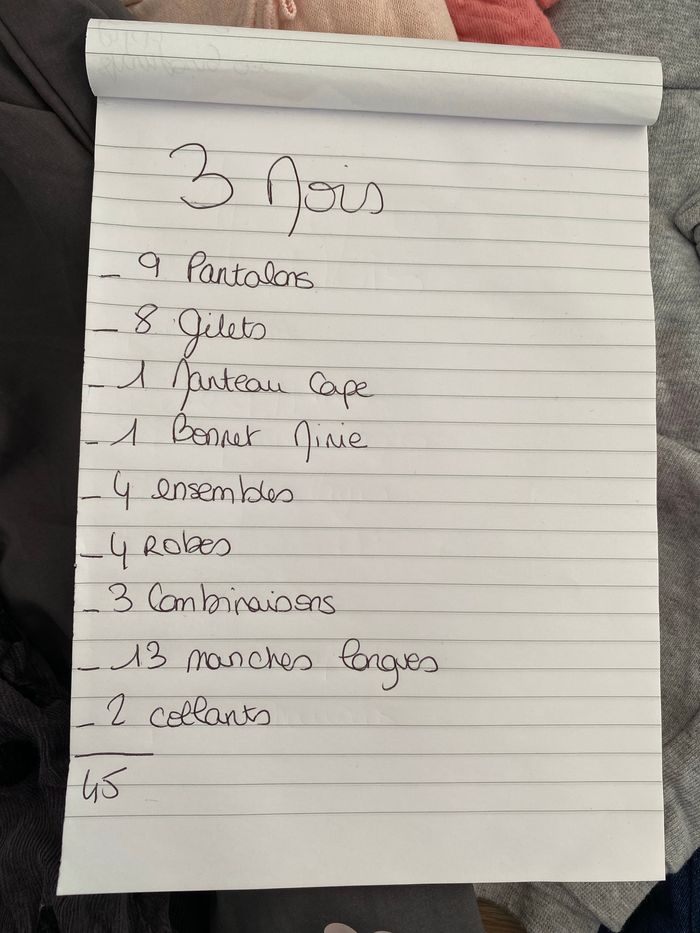 3 Mois
- 9 Pantalons
- 8 Gilets
- 1 Manteau Cape
- 1 Bonnet Minie
- 4 ensembles
- 4 Robes
- 3 Combinaisons
- 13 manches longues
- 2 collants
45